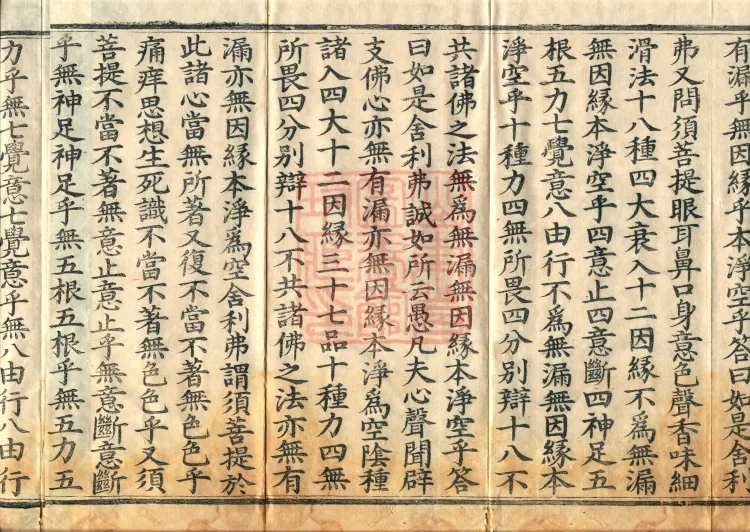 有漏乎無因緣乎本淨空乎答曰如是舍利
弗又問須菩提眼耳鼻口身意色聲香味細
滑法十八種四大衰入十二因緣不爲無漏
無因緣本淨空乎四意止四意斷四神足五
根五力七覺意八由行不爲無漏無因緣本
淨空乎十種力四無所畏四分别辯十八不
共諸佛之法無爲無漏無因緣本淨空乎答
曰如是舍利弗誠如所云愚凡夫心聲聞辟
支佛心亦無有漏亦無因緣本淨爲空陰種
諸入四大十二因緣三十七品十種力四無
所畏四分别辯十八不共諸佛之法亦無有
漏亦無因緣本淨爲空舍利弗謂須菩提於
此諸心當無所著又復不當不著無色色乎
痛痒思想生死識不當不著無色色乎又須
菩提不當不著無意止意止乎無意斷意斷
乎無神足神足乎無五根五根乎無五力五
力乎無七覺意七覺意乎無八由行八由行